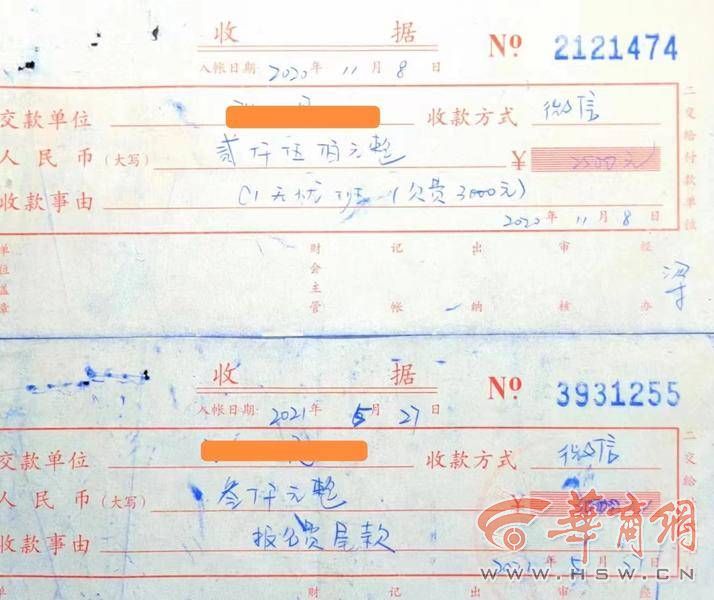 收 据
Nº 2121474
入帐日期 2020年 11月 8日
交款单位 收款方式 微信
人民币(大写) 贰仟伍佰元整 ¥ 2500元
收款事由 C1无忧班(欠费3000元)
2020年 11月 8日
单位盖章 财会主管 记帐 出纳 审核 经办
梁
二交给付款单位
收 据
Nº 3931255
入帐日期 2021年 5月 27日
交款单位 收款方式 微信
人民币(大写) 叁仟元整 ¥
收款事由 报名费尾款
二交给
华商網
www.HSW.CN